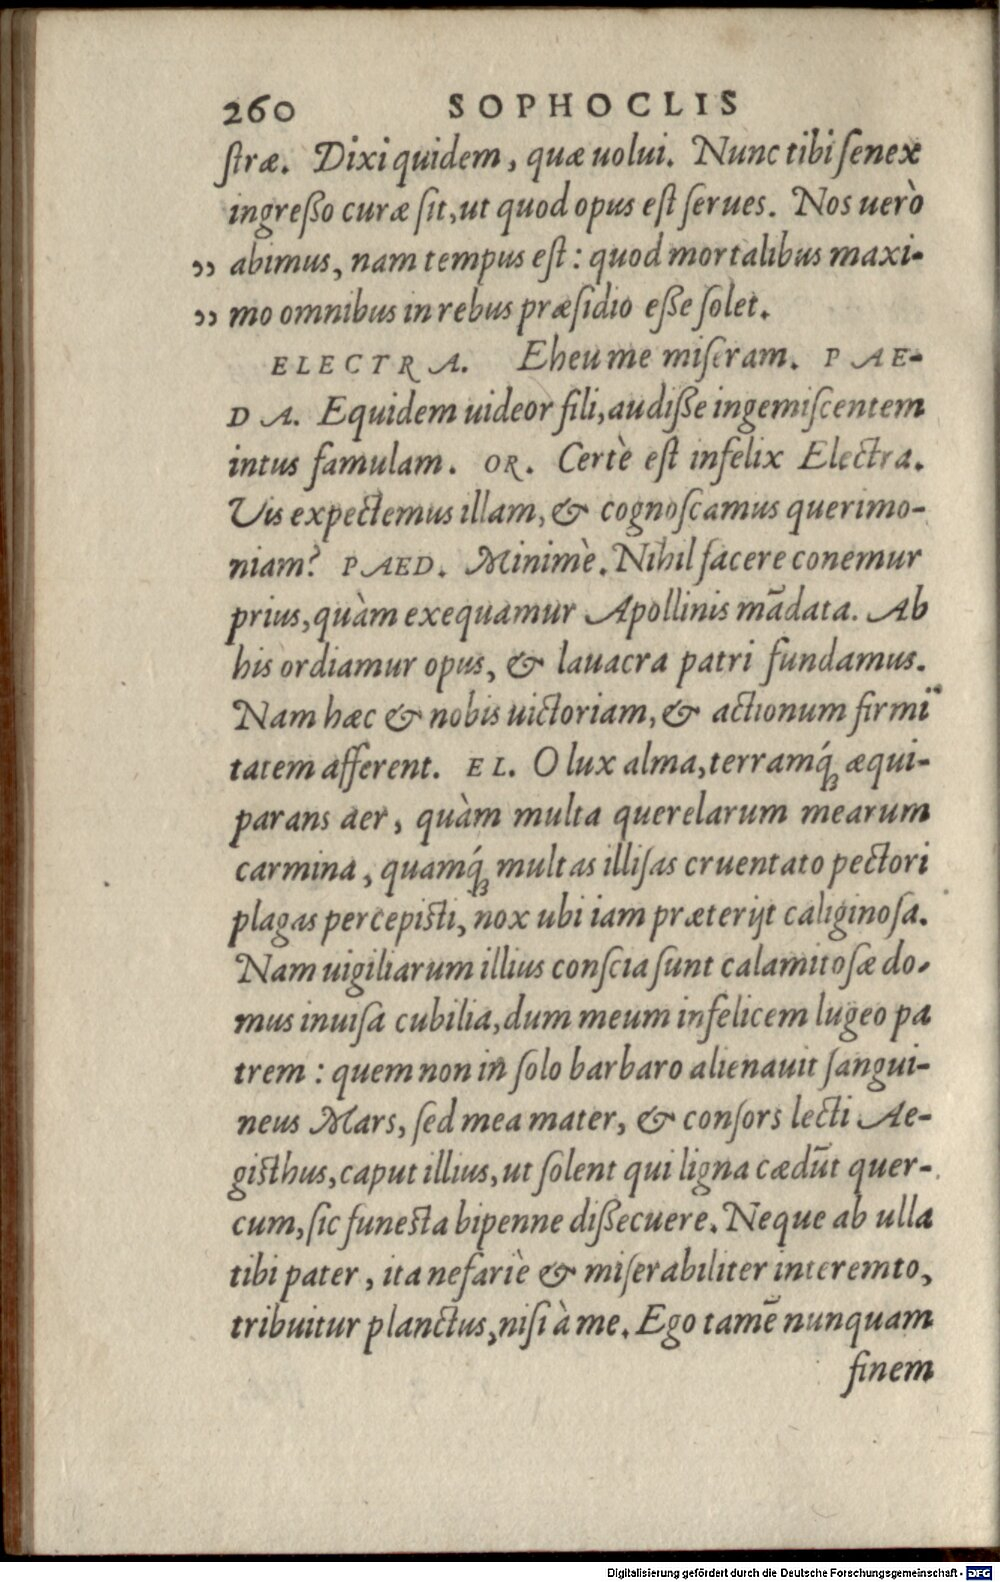 260 SOPHOCLIS
ſtræ. Dixi quidem, quæ uolui. Nunc tibi ſenex
ingreßo curæ ſit, ut quod opus eſt ſerues. Nos uerò
„ abimus, nam tempus eſt: quod mortalibus maxi-
„ mo omnibus in rebus præſidio eße ſolet.
ELECTRA. Eheu me miſeram. PAE-
DA. Equidem uideor fili, audiße ingemiſcentem
intus famulam. OR. Certè eſt infelix Electra.
Vis expectemus illam, & cognoſcamus querimo-
niam? PAED. Minimè. Nihil facere conemur
prius, quàm exequamur Apollinis mādata. Ab
his ordiamur opus, & lauacra patri fundamus.
Nam hæc & nobis uictoriam, & actionum firmi
tatem afferent. EL. O lux alma, terramq́; æqui-
parans aer, quàm multa querelarum mearum
carmina, quamq́; multas illiſas cruentato pectori
plagas percepiſti, nox ubi iam præterijt caliginoſa.
Nam uigiliarum illius conſcia ſunt calamitoſæ do-
mus inuiſa cubilia, dum meum infelicem lugeo pa
trem: quem non in ſolo barbaro alienauit ſangui-
neus Mars, ſed mea mater, & conſors lecti Ae-
giſthus, caput illius, ut ſolent qui ligna cædūt quer-
cum, ſic funeſta bipenne dißecuere. Neque ab ulla
tibi pater, ita nefariè & miſerabiliter interemto,
tribuitur planctus, niſi à me. Ego tamē nunquam
finem
Digitalisierung gefördert durch die Deutsche Forschungsgemeinschaft - DFG